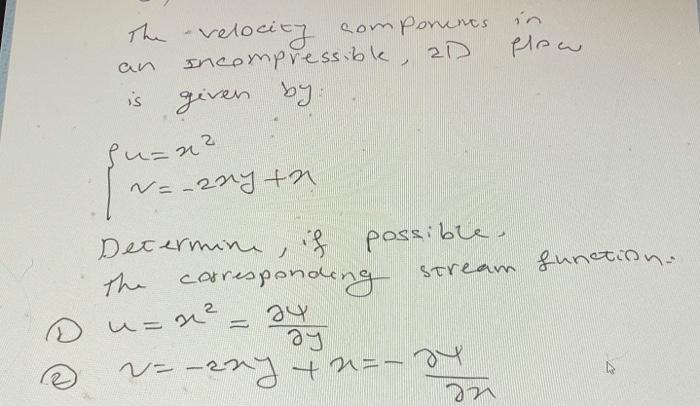 The velocity components in
an incompressible, 2D flow
is given by:
{ u = x²
v = -2xy + x
Determine, if possible,
the corresponding stream function.
① u = x² = ∂ψ/∂y
② v = -2xy + x = - ∂ψ/∂x